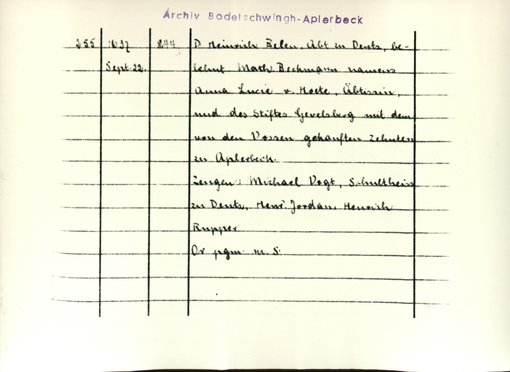 Archiv Bodelschwingh-Aplerbeck
255 1637 244 D. Heinrich Belen, Abt zu Deutz, be-
Sept. 22. lehnt Math. Beckmann namens
Anna Lucie v. Hoete, Äbtissin,
und des Stiftes Gevelsberg mit dem
von den Vossen gekauften Zehnten
zu Aplerbeck.
Zeugen: Michael Vogt, Schultheis
zu Deutz, Henr. Jordan, Heinrich
Kupper
Or. pgm. m. S.